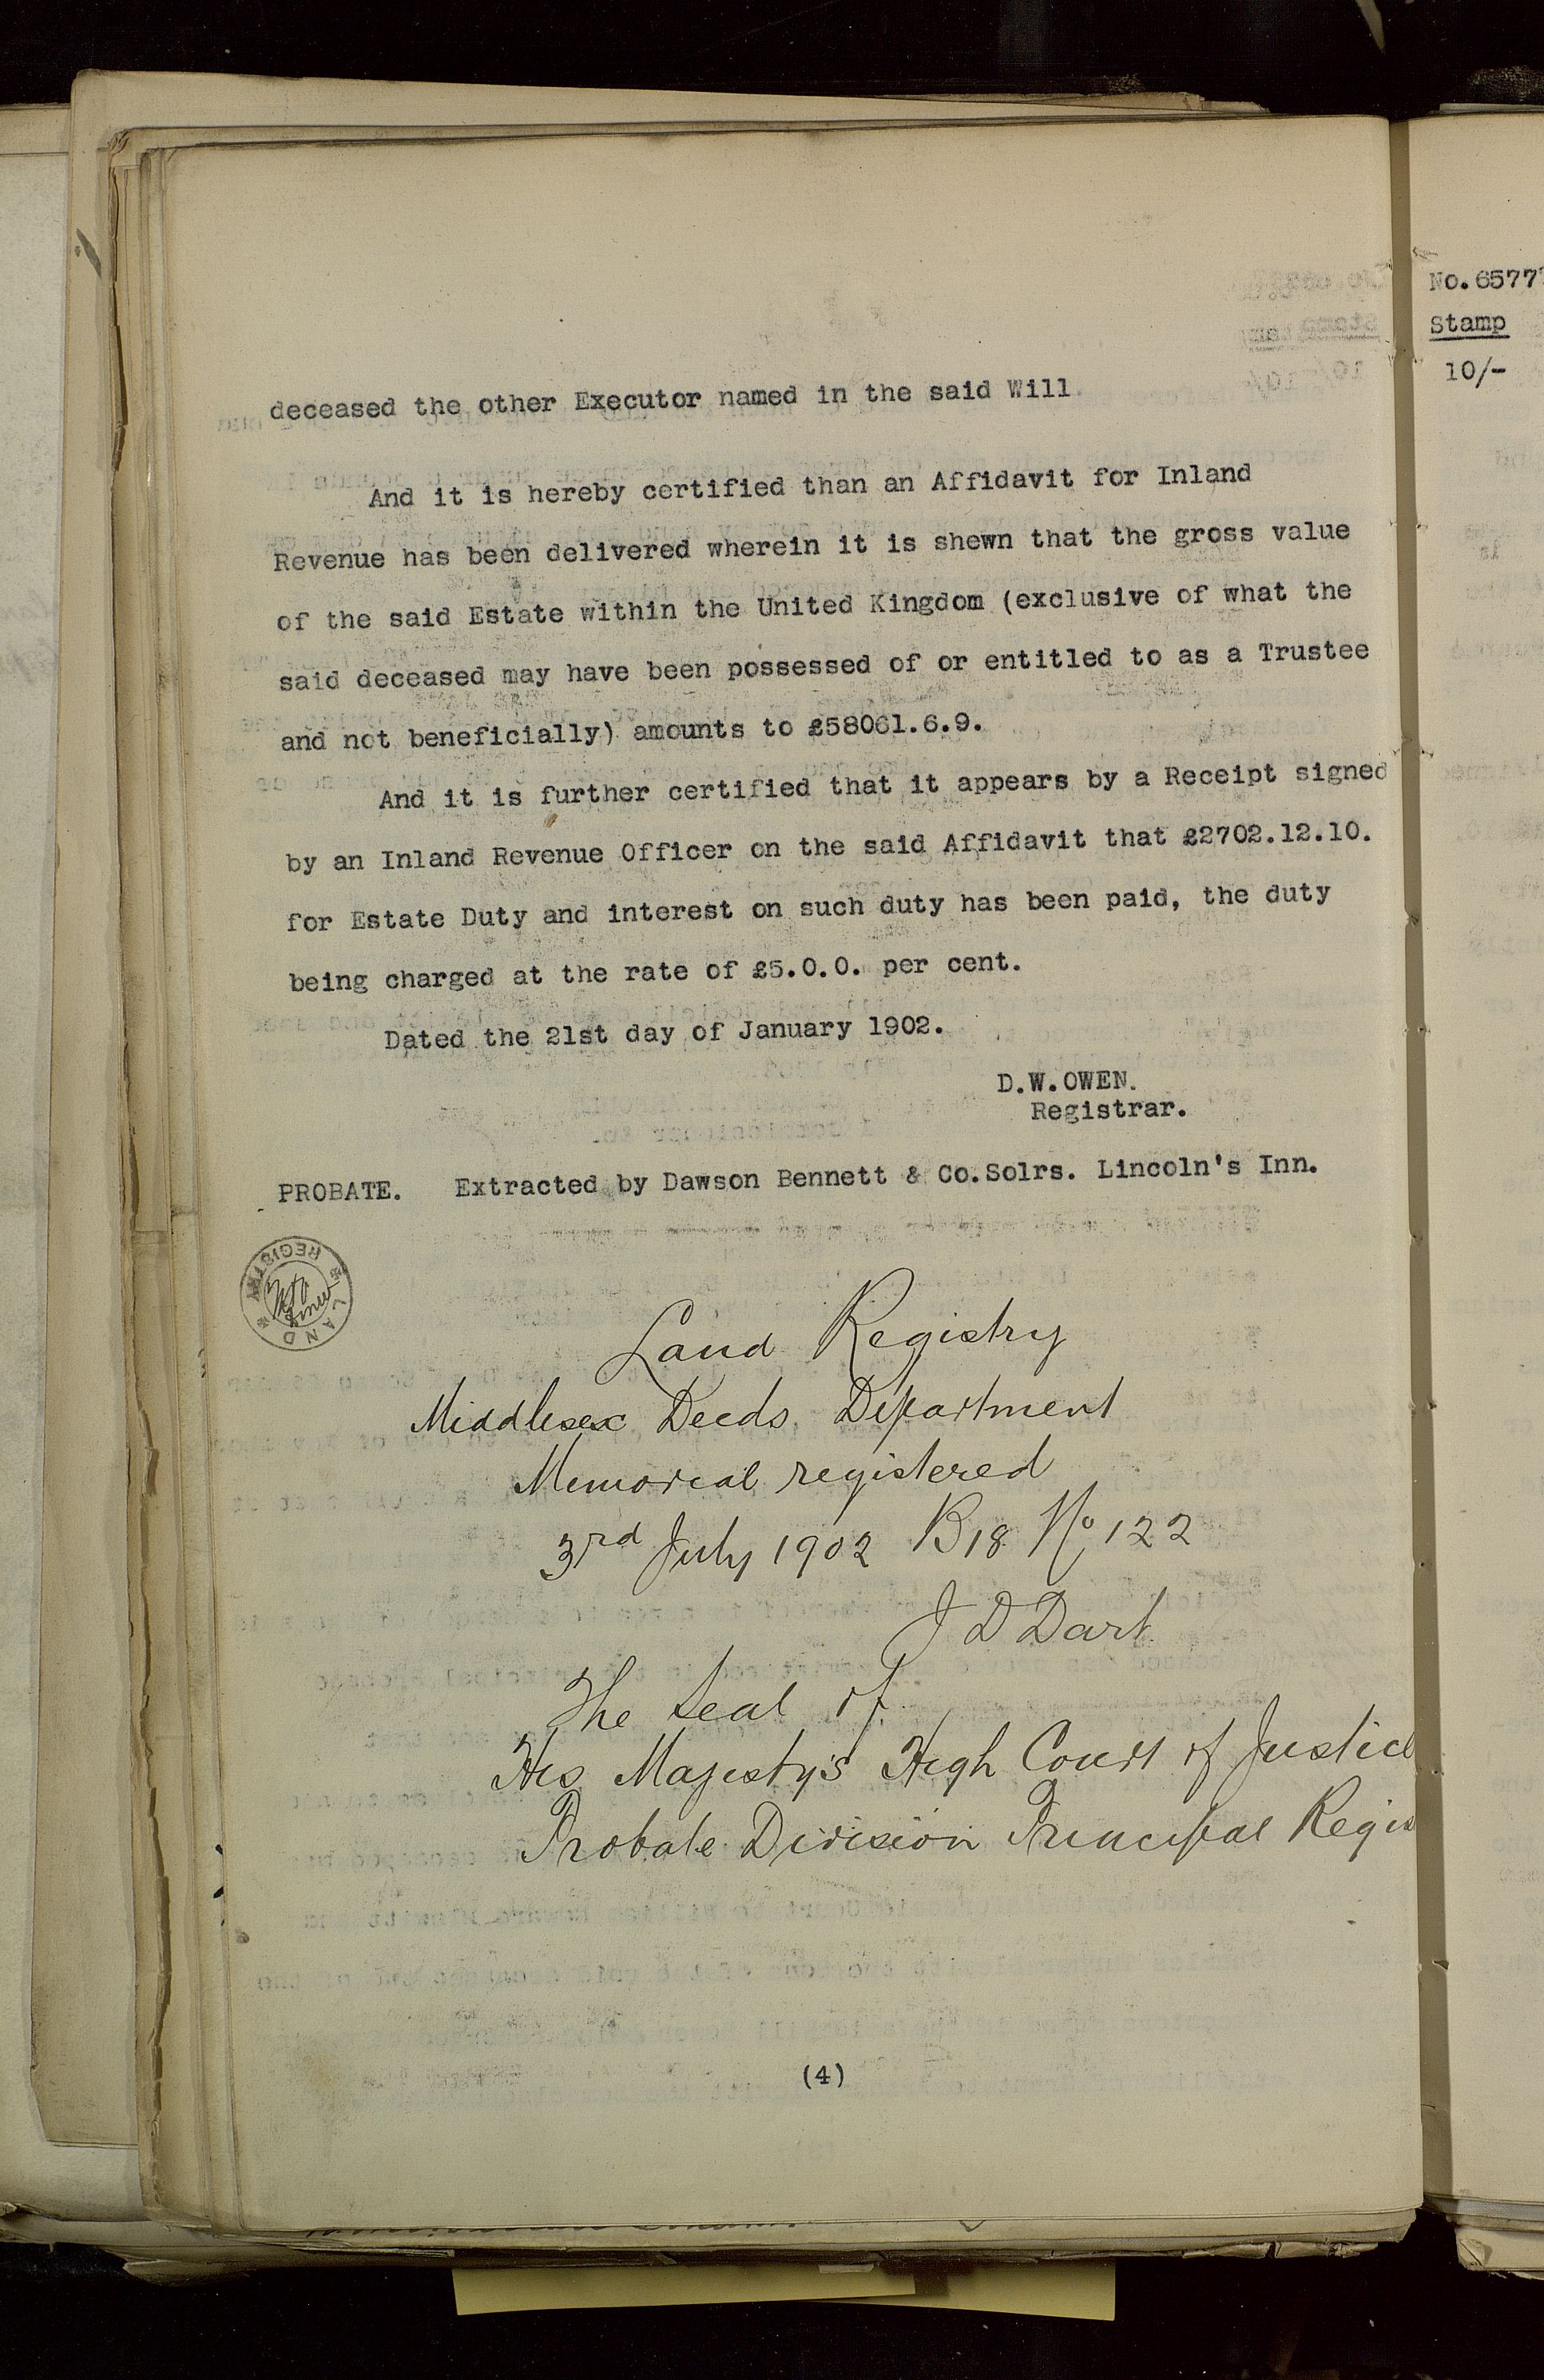 deceased the other Executor named in the said Will.
And it is hereby certified than an Affidavit for Inland
Revenue has been delivered wherein it is shewn that the gross value
of the said Estate within the United Kingdom (exclusive of what the
said deceased may have been possessed of or entitled to as a Trustee
and not beneficially) amounts to £58061.6.9.
And it is further certified that it appears by a Receipt signed
by an Inland Revenue Officer on the said Affidavit that £2702.12.10.
for Estate Duty and interest on such duty has been paid, the duty
being charged at the rate of £5.0.0. per cent.
Dated the 21st day of January 1902.
D.W.OWEN.
Registrar.
PROBATE. Extracted by Dawson Bennett & Co.Solrs. Lincoln's Inn.
LAND REGISTRY
Land Registry
Middlesex Deeds Department
Memorial registered
3rd July 1902 B18 No 122
J D Dart
The Seal of
His Majesty's High Court of Justice
Probate Division Principal Regis
(4)
No.6577
Stamp
10/-